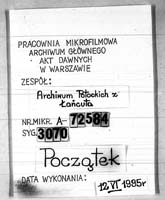 PRACOWNIA MIKROFILMOWA
ARCHIWUM GŁÓWNEGO
AKT DAWNYCH
W WARSZAWIE
ZESPÓŁ:
Archiwum Potockich z
Łańcuta
NR.MIKR. A-72584
SYG. 3070
Początek
DATA WYKONANIA:
12.VI 1985r